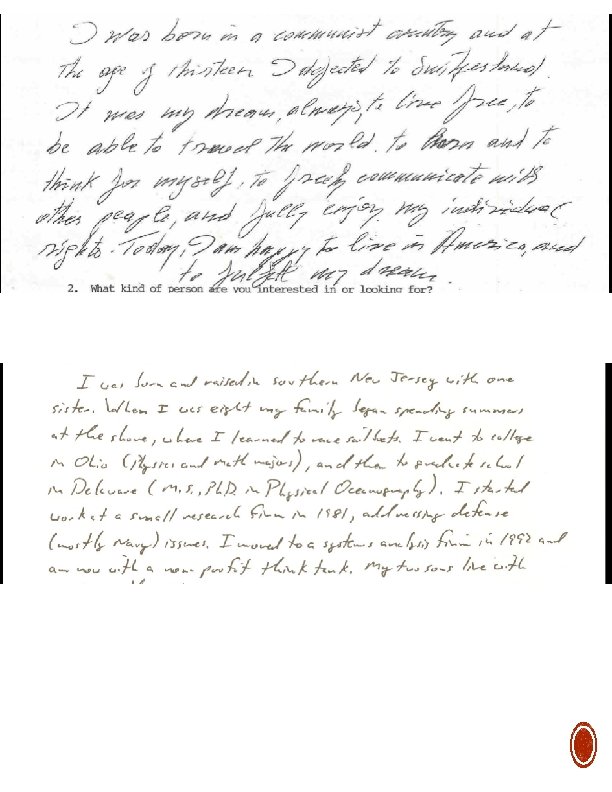 I was born in a communist country and at
the age of thirteen I defected to Switzerland.
It was my dream, always, to live free, to
be able to travel the world. to learn and to
think for myself, to freely communicate with
other people, and fully enjoy my individual
rights. Today, I am happy to live in America, and
to fulfill my dream
2. What kind of person are you interested in or looking for?
I was born and raised in southern New Jersey with one
sister. When I was eight my family began spending summers
at the shore, where I learned to race sailboats. I went to college
in Ohio (physics and math majors), and then to graduate school
in Delaware (M.S., Ph.D. in Physical Oceanography). I started
work at a small research firm in 1981, addressing defense
(mostly Navy) issues. I moved to a systems analysis firm in 1992 and
am now with a non-profit think tank. My two sons live with